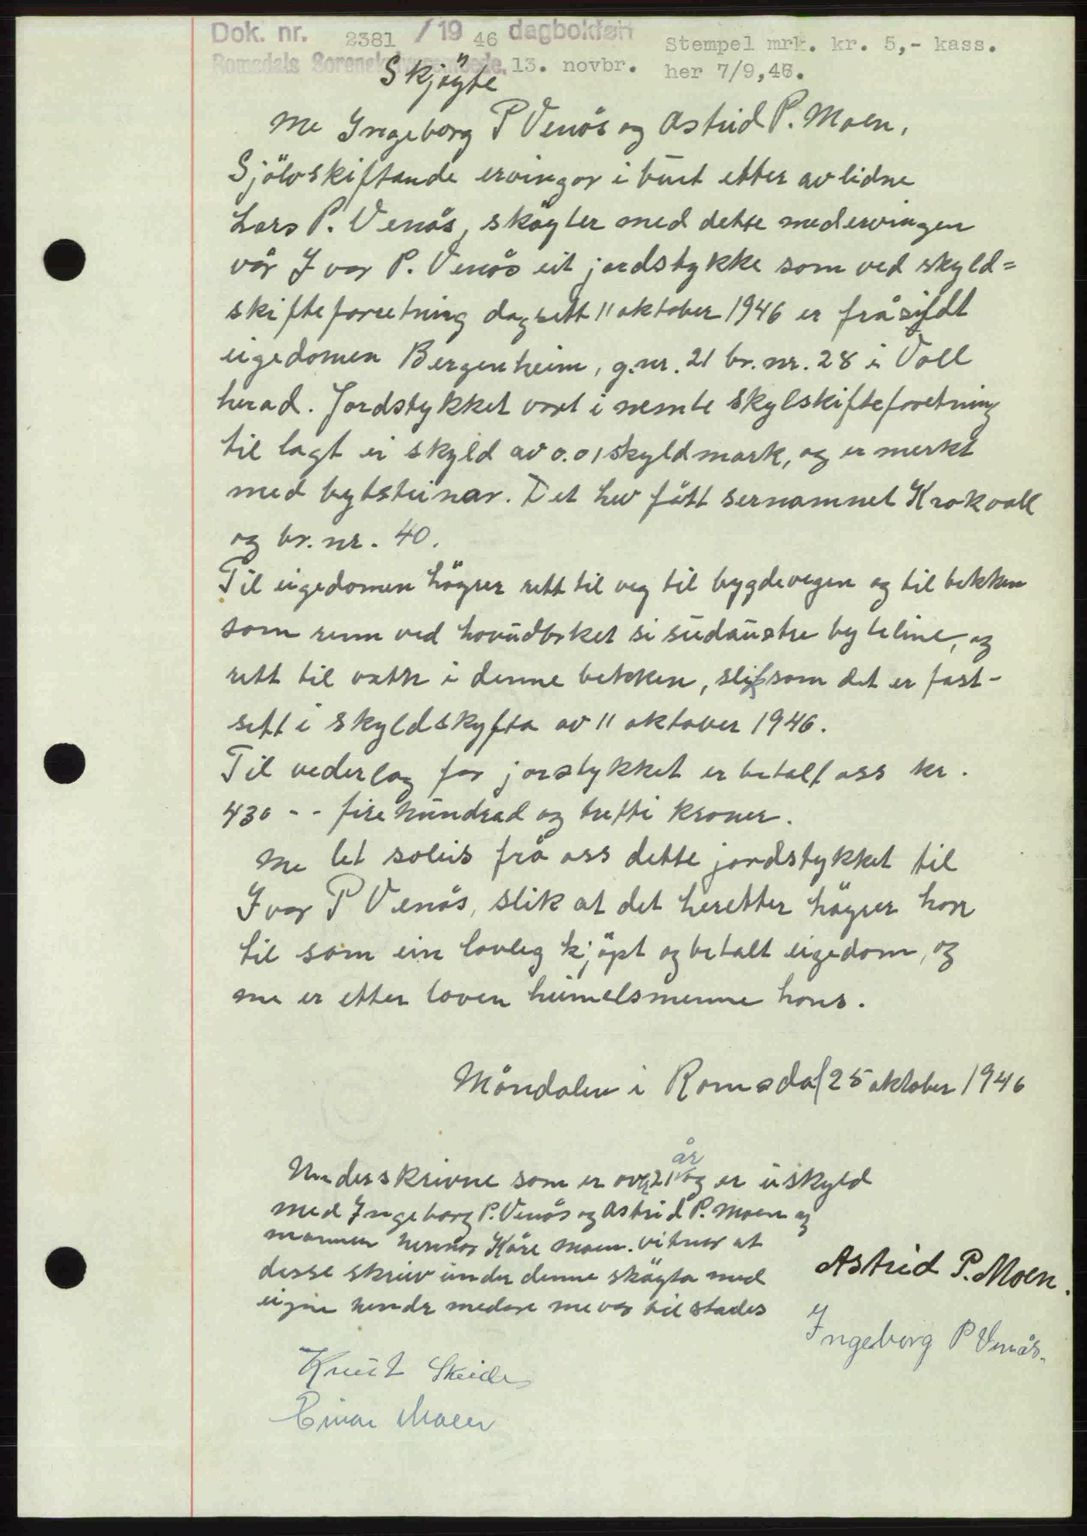 Dok. nr. 2381 /19 46 dagbokført
Stempel mrk. kr. 5,- kass.
Romsdals Sorenskriverembede, 13. novbr.
her 7/9,46.
Skjøyte
Me Ingeborg P Venås og Astrid P. Moen,
Sjölvskiftande ervingar i buet etter avlidne
Lars P. Venås, skøyter med dette medervingen
vår Ivar P. Venås eit jordstykke som ved skyld=
skifteforretning dagsett 11 oktober 1946 er fråskildt
eigedomen Bergenheim, g.nr. 21 br. nr. 28 i Voll
herad. Jordstykket vart i nemte skylskifteforetning
til lagt ei skyld av 0.01 skyldmark, og er merkt
med bytsteinar. Det hev fått sernamnet Krokvoll
og br. nr. 40.
Til eigedomen høyrer rett til veg til bygdevegen og til bekken
som renn ved hovudbrket si sudaustre byteline, og
rett til vatn i denne bekken, slik som det er fast-
sett i skyldskyfta av 11 oktober 1946.
Til vederlag for jorstykket er betalt oss kr.
430 - - firehundrad og tretti kroner.
Me let soleis frå oss dette jordstykket til
Ivar P Venås, slik at det heretter høyrer hon
til som ein lovleg kjöpt og betalt eigedom, og
me er etter loven heimelsmenne hans.
Måndalen i Romsdal 25 oktober 1946
år
Underskrivne som er over 21 og er uskyld
med Ingeborg P. Venås og Astrid P. Moen og
mannen hennar Kåre Moen. vitnar at
desse skreiv under denne skøyta med
eigne hender medan me var til stades
Astrid P. Moen.
Ingeborg P Venås.
Knut Skeide
Einar Moen